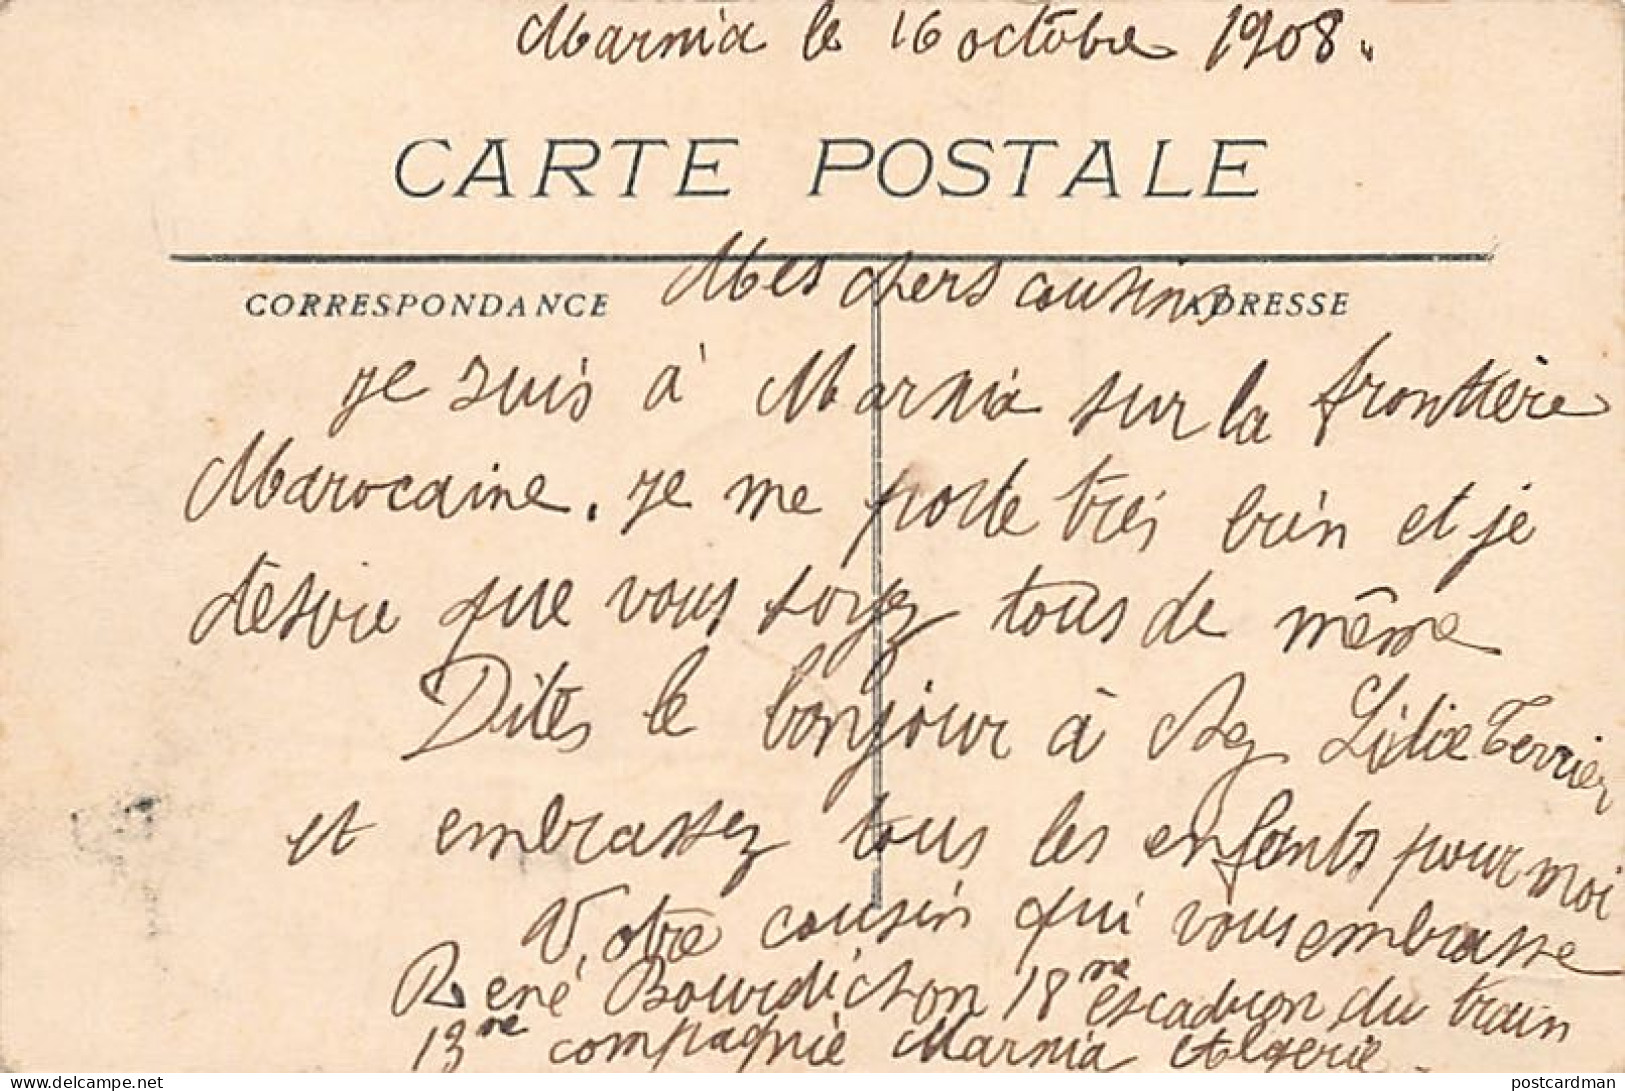 Marnia le 16 octobre 1908.
CARTE POSTALE
CORRESPONDANCE
ADRESSE
Mes chers cousins
je suis à Marnia sur la frontière
Marocaine. je me porte très bien et je
désire que vous soyez tous de même
Dites le bonjour à chez Terrier
et embrassez tous les enfants pour moi
Votre cousin qui vous embrasse
René Bourdichon 18me escadron du train
13me compagnie Marnia Algerie.
postcardman